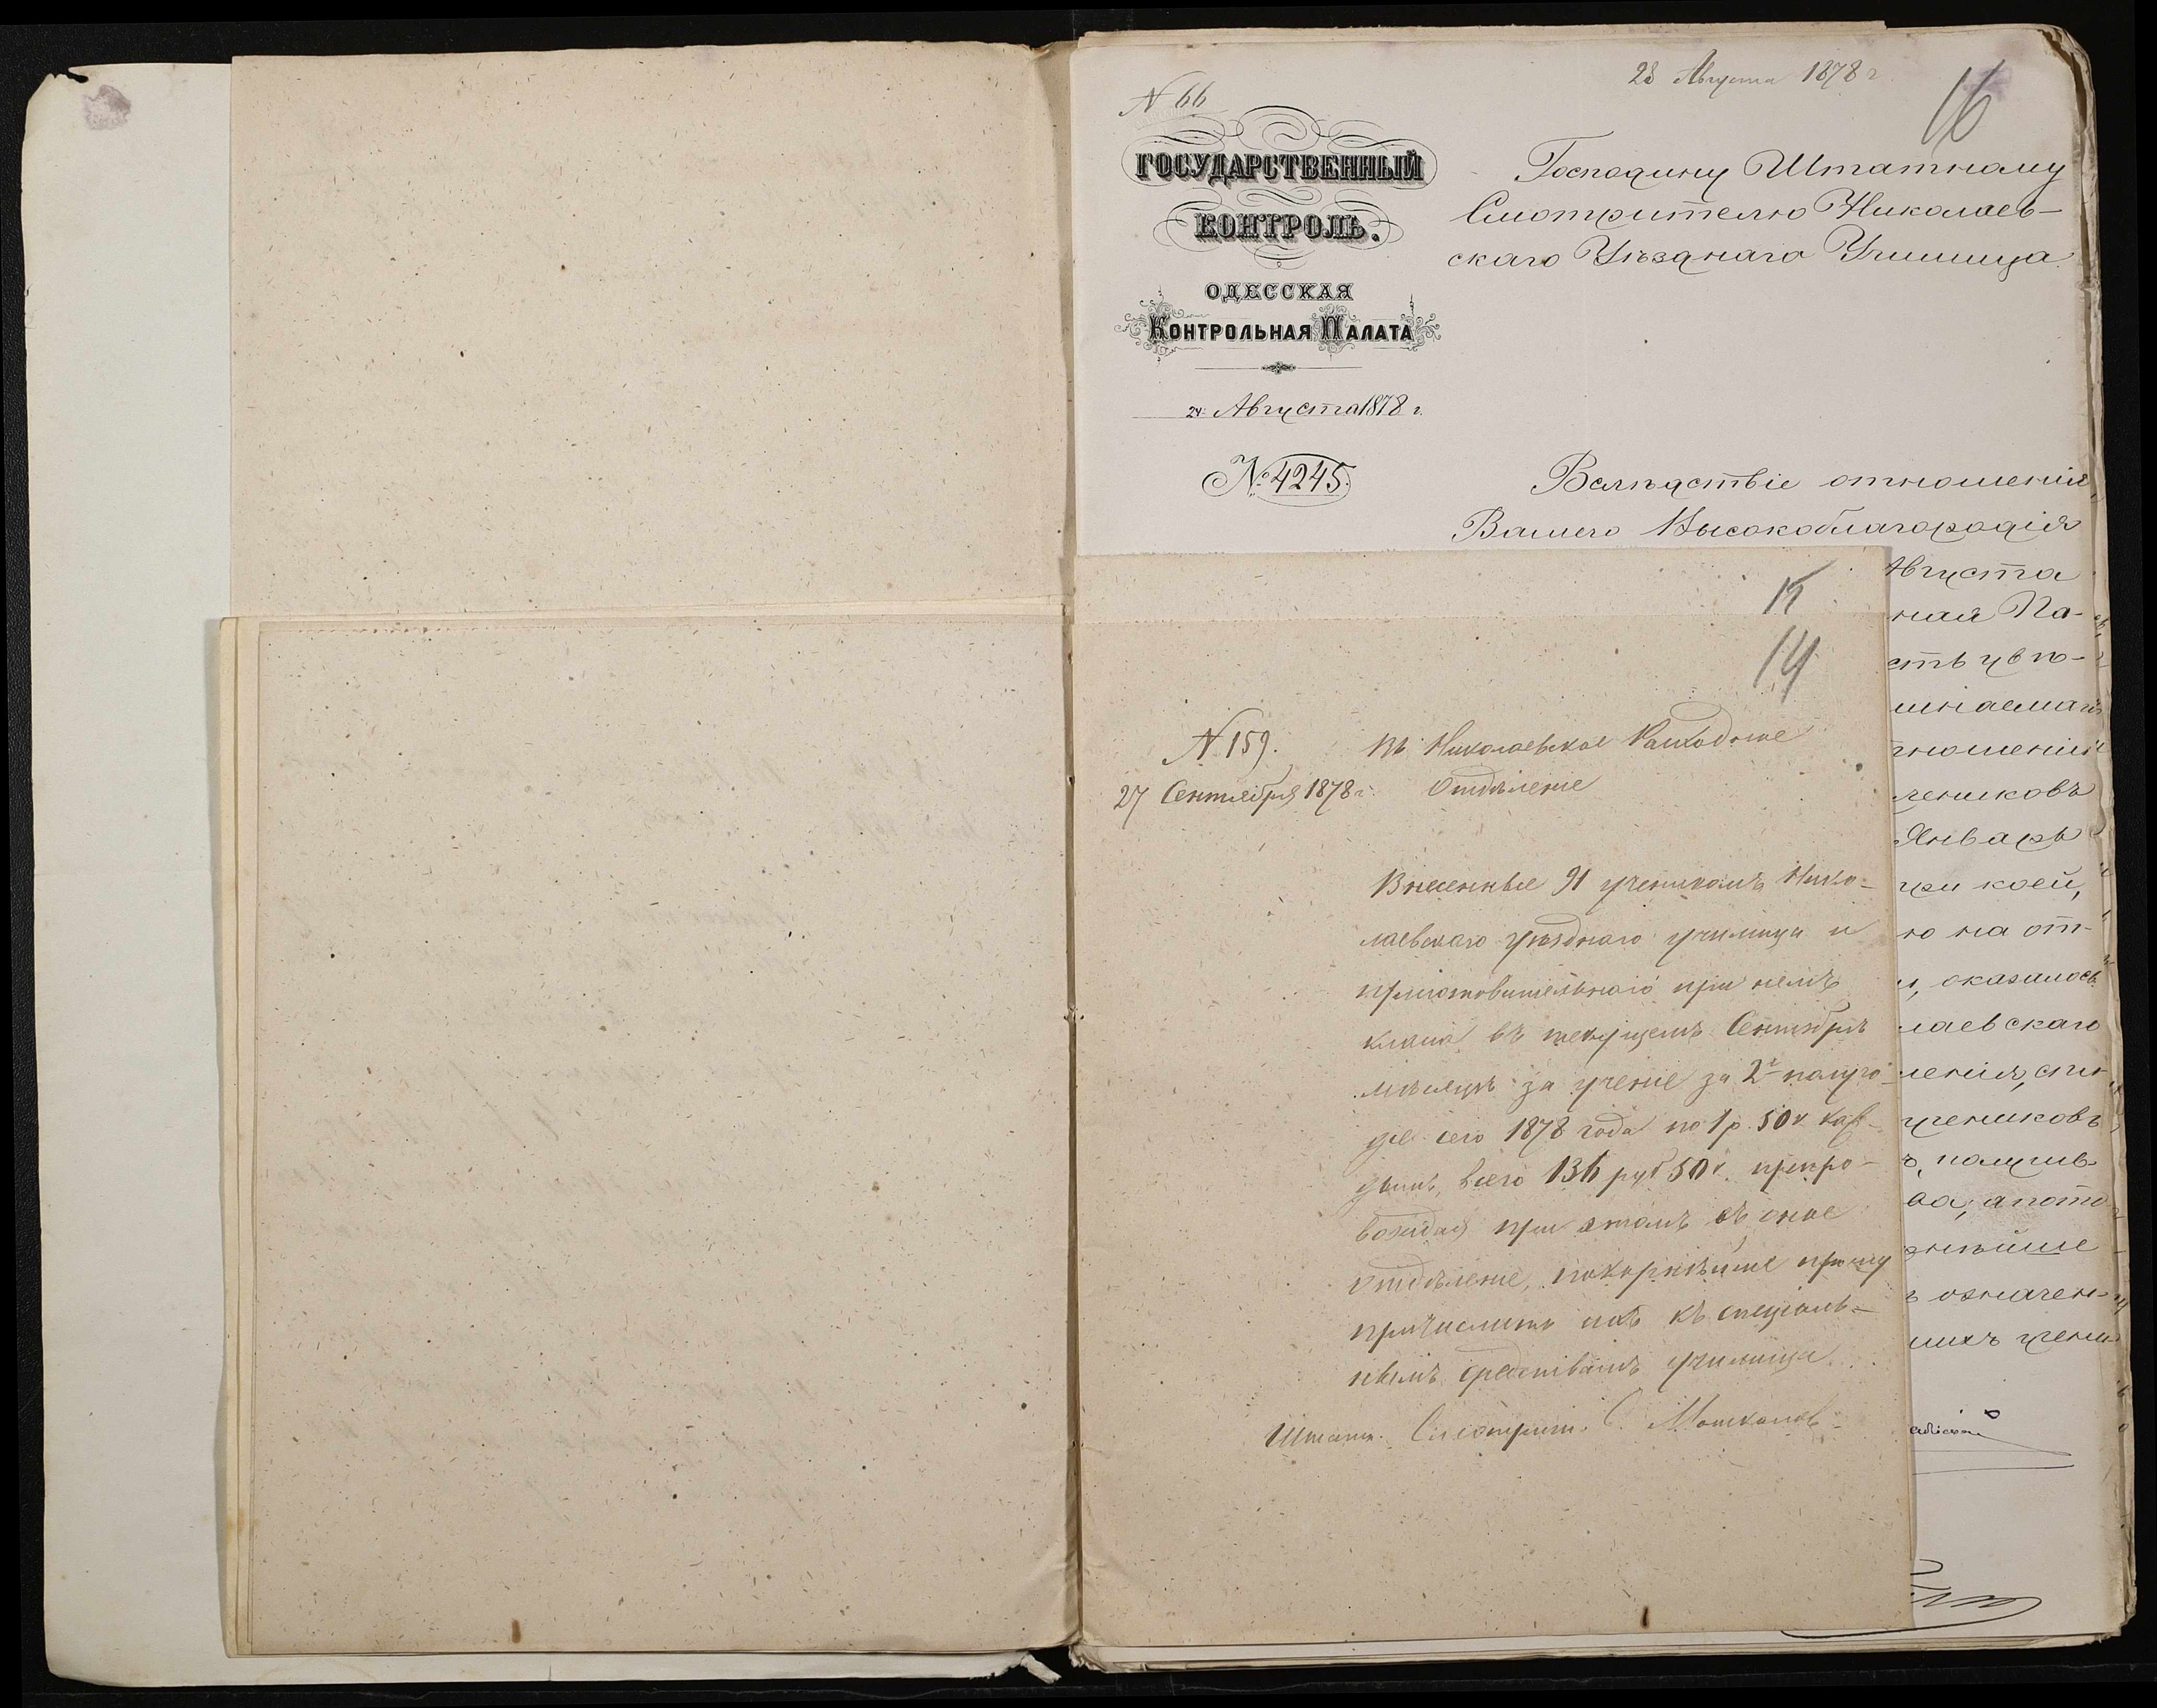 28 Августа 1878 г
N 66
16
ГОСУДАРСТВЕННЫЙ
КОНТРОЛЬ.
ОДЕССКАЯ
КОНТРОЛЬНАЯ ПАЛАТА
24 Августа 1878 г.
№ 4245.
Господину Штатному
Смотрителю Николаев-
скаго Уѣзднаго Училища
Вслѣдствіе отношенія
Вашего Высокоблагородія
Августа
ная Па-
сть увѣ-
минаемаго
тношенія
чениковъ
Январь
при коей,
ю на от-
и, оказалось
лаевскаго
ленія, спи
учениковъ
ъ, получив-
ва, а пото
рнѣйше
ъ означен-
шихъ учени
15
14
N 159.
27 Сентября 1878 г.
Въ Николаевское Расходное
Отдѣленіе
Внесенные 91 ученикомъ Нико-
лаевскаго уѣзднаго училища и
приготовительнаго при немъ
класса въ текущемъ Сентябрѣ
мѣсяцѣ за ученіе за 2е полуго-
діе сего 1878 года по 1 р. 50 к. каж-
дымъ, всего 136 руб 50 к. препро-
вождая при этомъ въ оное
отдѣленіе, покорнѣйше прошу
причислить ихъ къ спеціаль-
нымъ средствамъ училища.
Штатн. Смотрит. С.